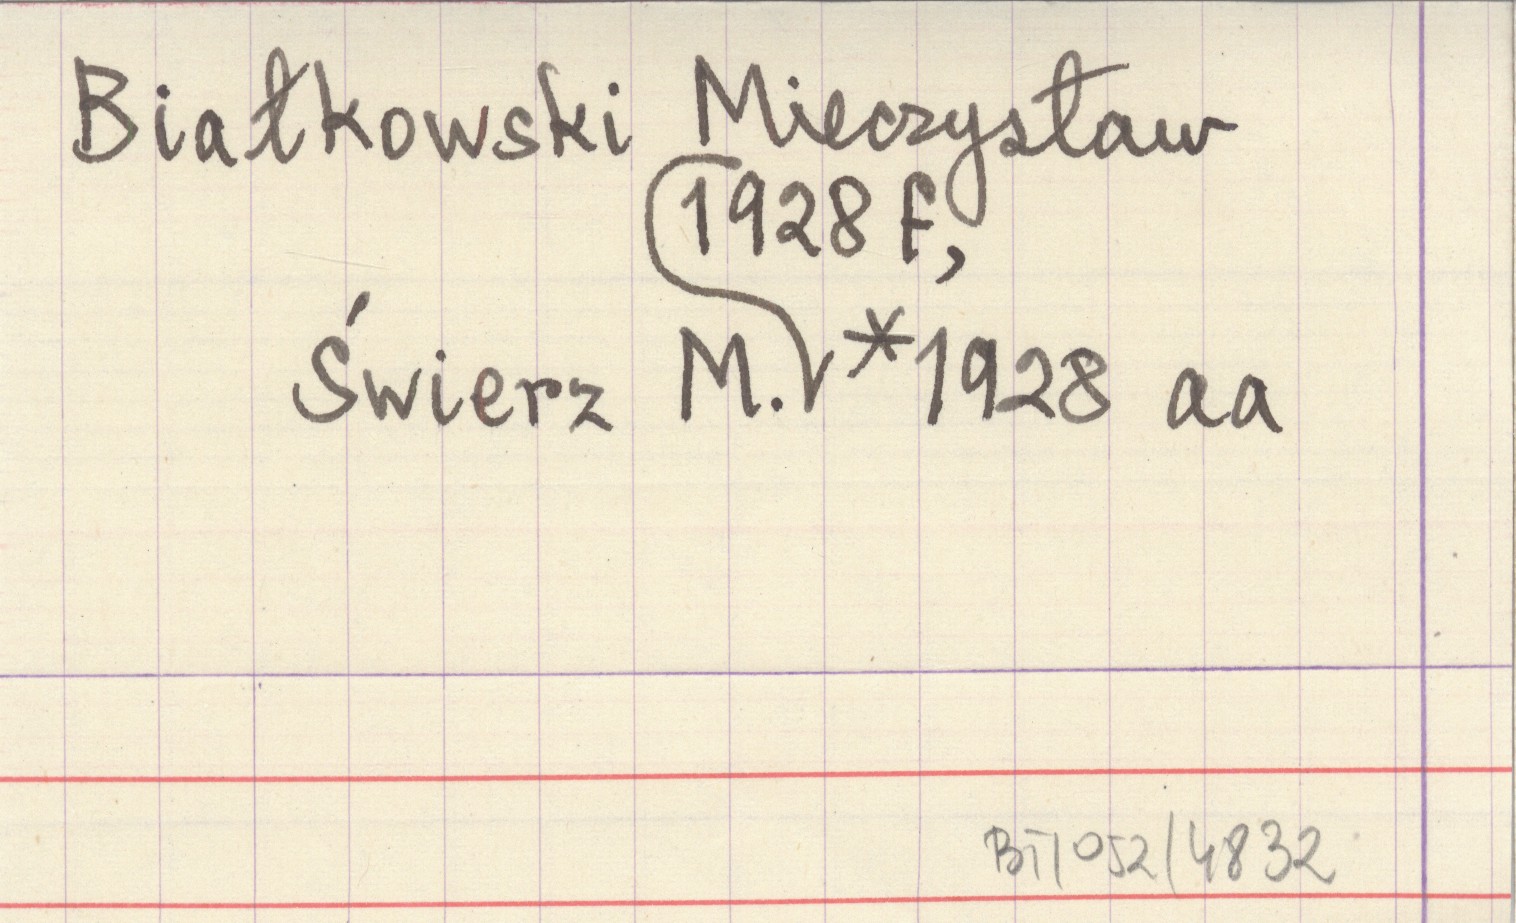 Białkowski Mieczysław
1928 f,
Świerz M. *1928 aa
BT/052/4832